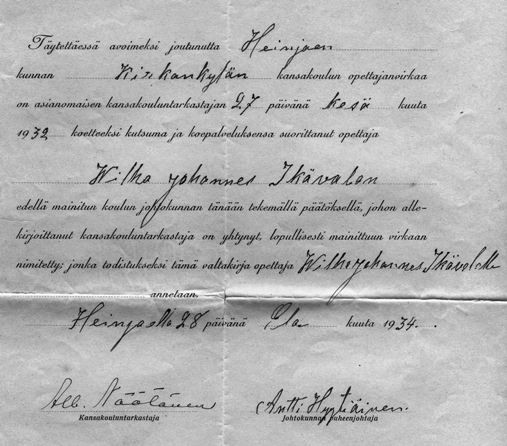 Täytettäessä avoimeksi joutunutta Heinjoen
kunnan Kirkonkylän kansakoulun opettajanvirkaa
on asianomaisen kansakouluntarkastajan 27 päivänä kesä kuuta
1932 koetteeksi kutsuma ja koepalveluksensa suorittanut opettaja
Wilho Johannes Ikävalon
edellä mainitun koulun johtokunnan tänään tekemällä päätöksellä, johon alle-
kirjoittanut kansakouluntarkastaja on yhtynyt, lopullisesti mainittuun virkaan
nimitetty; jonka todistukseksi tämä valtakirja opettaja Wilho Johannes Ikävalolle
annetaan.
Heinjoella 28 päivänä Elo kuuta 1934.
Alb. Näätänen Antti Hyytiäinen.
Kansakouluntarkastaja Johtokunnan puheenjohtaja